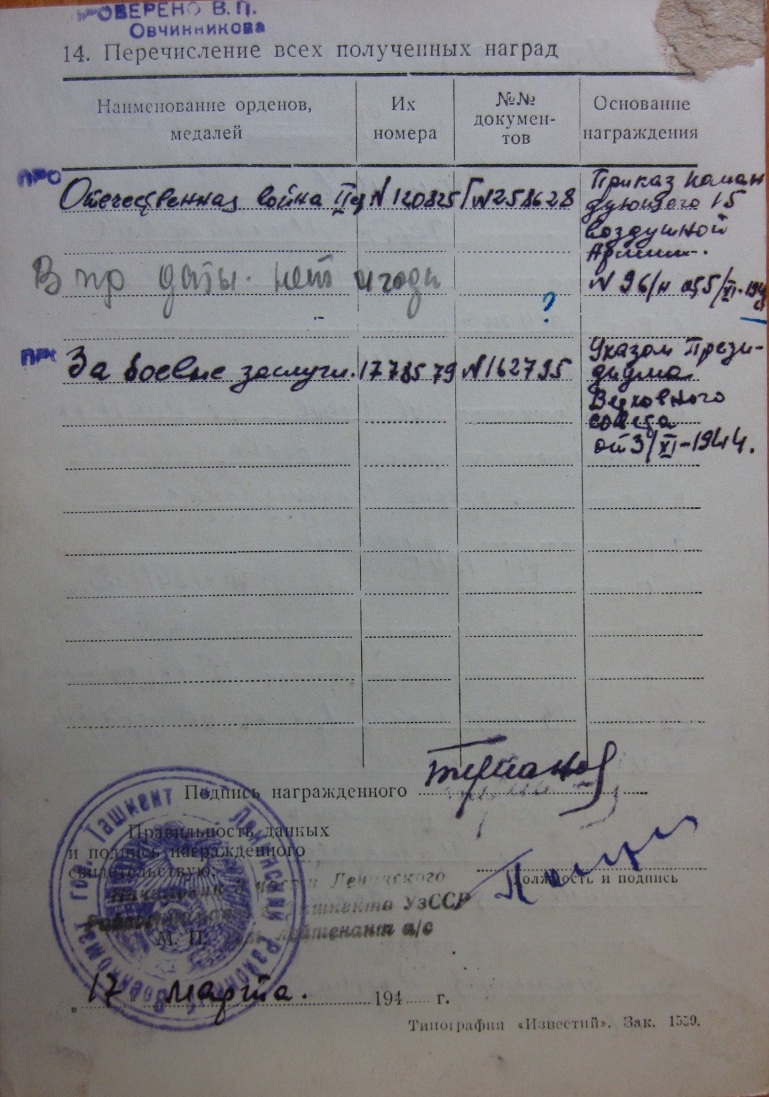 ПРОВЕРЕНО В. П.
Овчинникова
14. Перечисление всех полученных наград
Наименование орденов,
медалей
Их
номера
№№
докумен-
тов
Основание
награждения
ПРО
Отечественная война II N 120825 Г N258628
Приказ коман
дующего 15
воздушной
Армии.
N 96/н
В пр даты. нет и года
?
ПРО
За боевые заслуги. 1778579 N162795
Указом Прези-
диума
Верховного
совета
от 3/XI-1944.
Подпись награжденного
Правильность данных
и подпись награжденного
свидетельствую.
Начальник части Ленинского
Ташкента УзССР
лейтенант а/с
Должность и подпись
М. П.
Ташкент Ленинский Военкомат гор.
„ 17 марта. 194 г.
Типография «Известий». Зак. 1559.